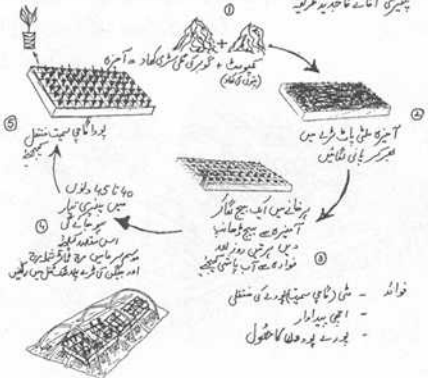 پنیری اگانے کا جدید طریقہ
①
کمپوسٹ + گوبر کی گلی سڑی کھاد = آمیزہ
(پتوں کی کھاد)
②
آمیزہ ملٹی پاٹ ٹرے میں
بھر کر پانی لگائیں
③
ہر خانے میں ایک بیج لگا کر
آمیزہ سے بیج ڈھانپ
دیں ہر تین روز بعد
فوارہ سے آب پاشی کیجئے
④
40 تا 45 دنوں
میں پنیری تیار
ہو جائے گی
اس مقصد کیلئے
موسم سرما میں مرچ ٹماٹر شملہ مرچ
اور بینگن کی ٹرے پلاسٹک ٹنل میں رکھیں
⑤
پودا گاچی سمیت منتقل
کیجئے
فوائد - مٹی (گاچی سمیت) پودے کی منتقلی
- اچھی پیداوار
- پورے پودوں کا حصول